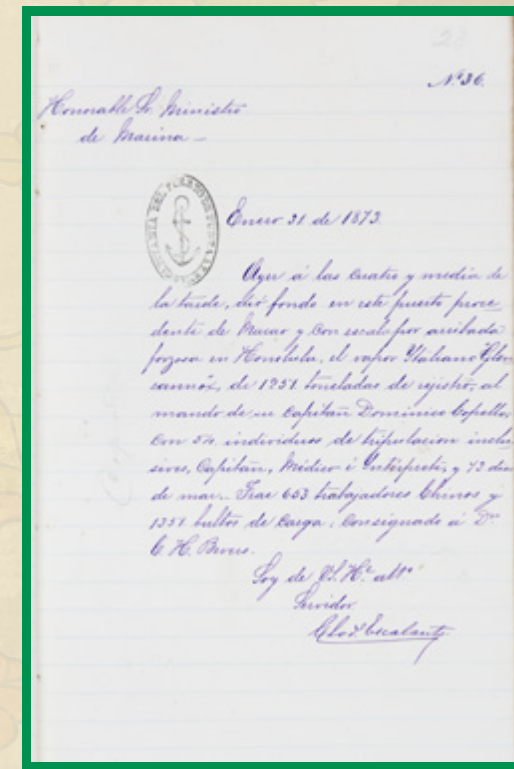 23
Nº 36.
Honorable Sr. Ministro
de Marina _
Enero 31 de 1873.
Ayer á las cuatro y media de
la tarde, dió fondo en este puerto proce_
dente de Macao y con escala por arribada
forzosa en Honolulu, el vapor Italiano Glen
sannox, de 1951 toneladas de rejistro, al
mando de su Capitan Dominico Copello,
con 54 individuos de tripulacion inclu
sives, Capitan, Médico é Intérprete, y 73 dias
de mar. Trae 653 trabajadores Chinos y
1351 bultos de carga; consignado á Dn.
C. H.
Soy de U.S. Hº. atto.
Servidor
Escalante